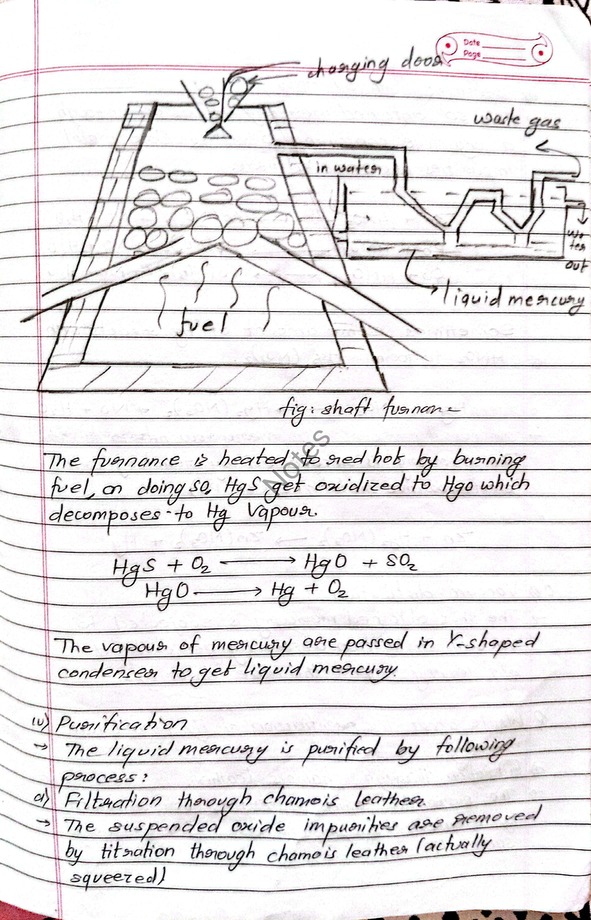 Date
Page
charging door
waste gas
in water
wa
ter
out
liquid mercury
fuel
fig: shaft furnance
Notes
The furnance is heated to red hot by burning
fuel, on doing so, HgS get oxidized to HgO which
decomposes to Hg Vapour.
HgS + O₂ ⟶ HgO + SO₂
HgO ⟶ Hg + O₂
The vapour of mercury are passed in Y-shaped
condenser to get liquid mercury.
iv) Purification
→ The liquid mercury is purified by following
process:
a) Filtration through chamois leather
→ The suspended oxide impurities are removed
by titration through chamois leather (actually
squeezed)